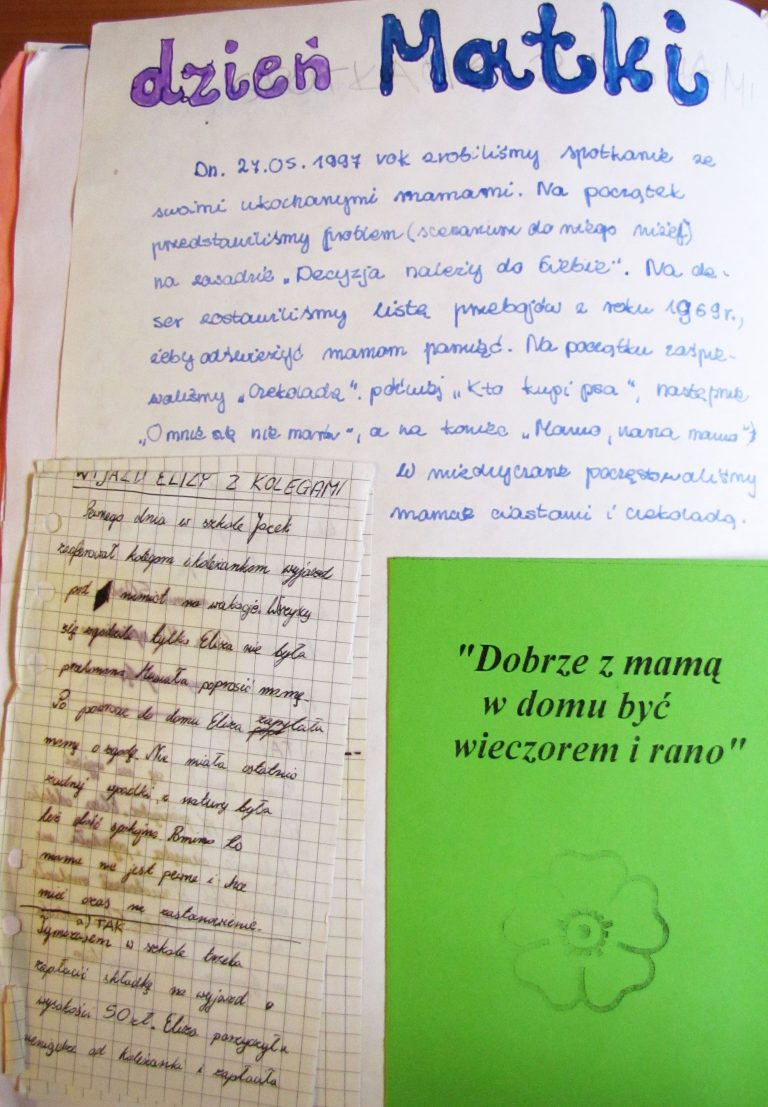 dzień Matki
Dn. 27.05.1997 rok zrobiliśmy spotkanie ze
swoimi ukochanymi mamami. Na początek
przedstawiliśmy problem (scenariusz do niego niżej)
na zasadzie „Decyzja należy do Ciebie". Na de-
ser zostawiliśmy listę przebojów z roku 1969r.,
żeby odświeżyć mamom pamięć. Na początku zaśpie-
waliśmy „Czekoladę". potem „Kto kupi psa", następnie
„O mnie się nie martw", a na koniec „Mamo, nasza mamo")
W międzyczasie poczęstowaliśmy
mamusie ciastami i czekoladą.
WYJAZD ELIZY Z KOLEGAMI
Pewnego dnia w szkole Jacek
zaoferował kolegom i koleżankom wyjazd
pod namiot na wakacje. Wszyscy
się zgodzili tylko Eliza nie była
przekonana. Musiała poprosić mamę.
Po powrocie do domu Eliza zapytała
mamę o zgodę. Nie miała ostatnio
żadnej wpadki, z natury była
też dość spokojna. Pomimo to
mama nie jest pewna i chce
mieć czas na zastanowienie.
a) TAK
Tymczasem w szkole trzeba
zapłacić składkę na wyjazd o
wysokości 50 zł. Eliza pożyczyła
pieniądze od koleżanki i zapłaciła
"Dobrze z mamą
w domu być
wieczorem i rano"